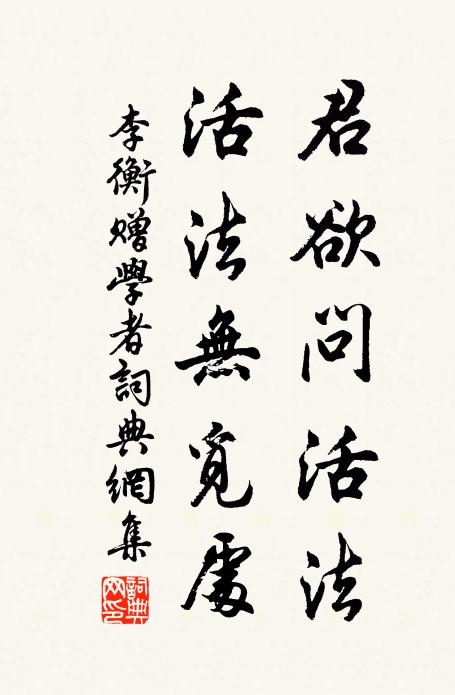 君欲問活法
活法無覓處
李衡贈學者詞典網集
詞典網印